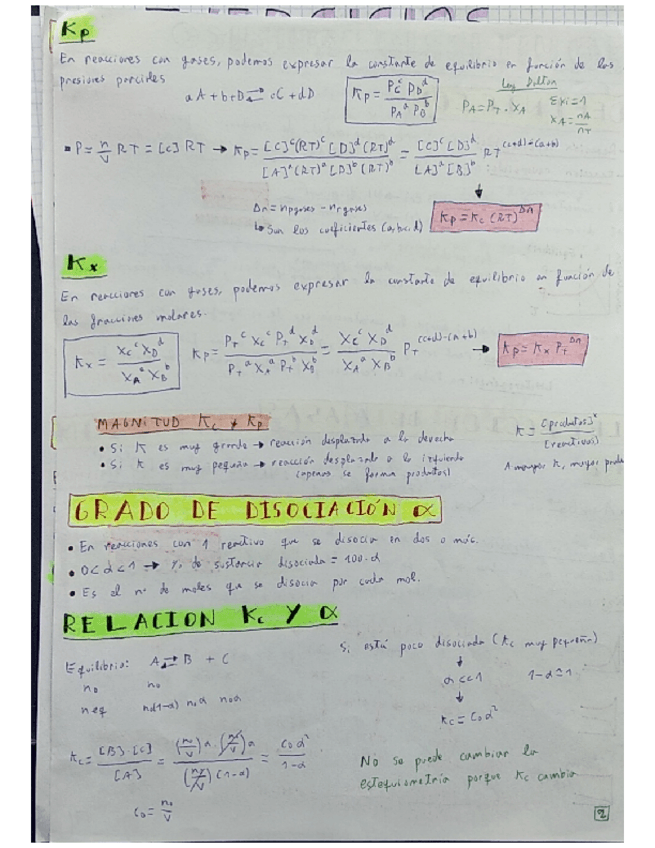 Kp
En reacciones con gases, podemos expresar la constante de equilibrio en función de las
presiones parciales
aA + bB ⇄ cC + dD
Kp = Pc^c PD^d / PA^a PB^b
Ley Dalton
PA = PT · XA
Σxi = 1
XA = nA / nT
• P = n/V RT = [C] RT → Kp = [C]^c (RT)^c [D]^d (RT)^d / [A]^a (RT)^a [D]^b (RT)^b = [C]^c [D]^d / [A]^a [B]^b RT^(c+d)-(a+b)
Δn = npgases - nrgases
↳ Son los coeficientes (a,b,c,d)
Kp = Kc (RT)^Δn
Kx
En reacciones con gases, podemos expresar la constante de equilibrio en función de
las fracciones molares.
Kx = Xc^c XD^d / XA^a XB^b
Kp = PT^c Xc^c PT^d XD^d / PT^a XA^a PT^b XB^b = Xc^c XD^d / XA^a XB^b PT^(c+d)-(a+b) → Kp = Kx PT^Δn
MAGNITUD Kc y Kp
• Si K es muy grande → reacción desplazada a la derecha
• Si K es muy pequeña → reacción desplazada a la izquierda
(apenas se forma productos)
K = [productos]^x / [reactivos]
A mayor K, mayor produ
GRADO DE DISOCIACIÓN α
• En reacciones con 1 reactivo que se disocia en dos o más.
• 0<α<1 → % de sustancia disociada = 100·α
• Es el nº de moles que se disocia por cada mol.
RELACION Kc Y α
Equilibrio: A ⇄ B + C
n0 n0
neq n0(1-α) n0α n0α
Kc = [B]·[C] / [A] = (n0/V)α · (n0/V)α / (n0/V)(1-α) = C0α² / 1-α
C0 = n0/V
Si está poco disociada (Kc muy pequeña)
↓
α<<1 1-α≃1
↓
Kc = C0α²
No se puede cambiar la
estequiometría porque Kc cambia
2